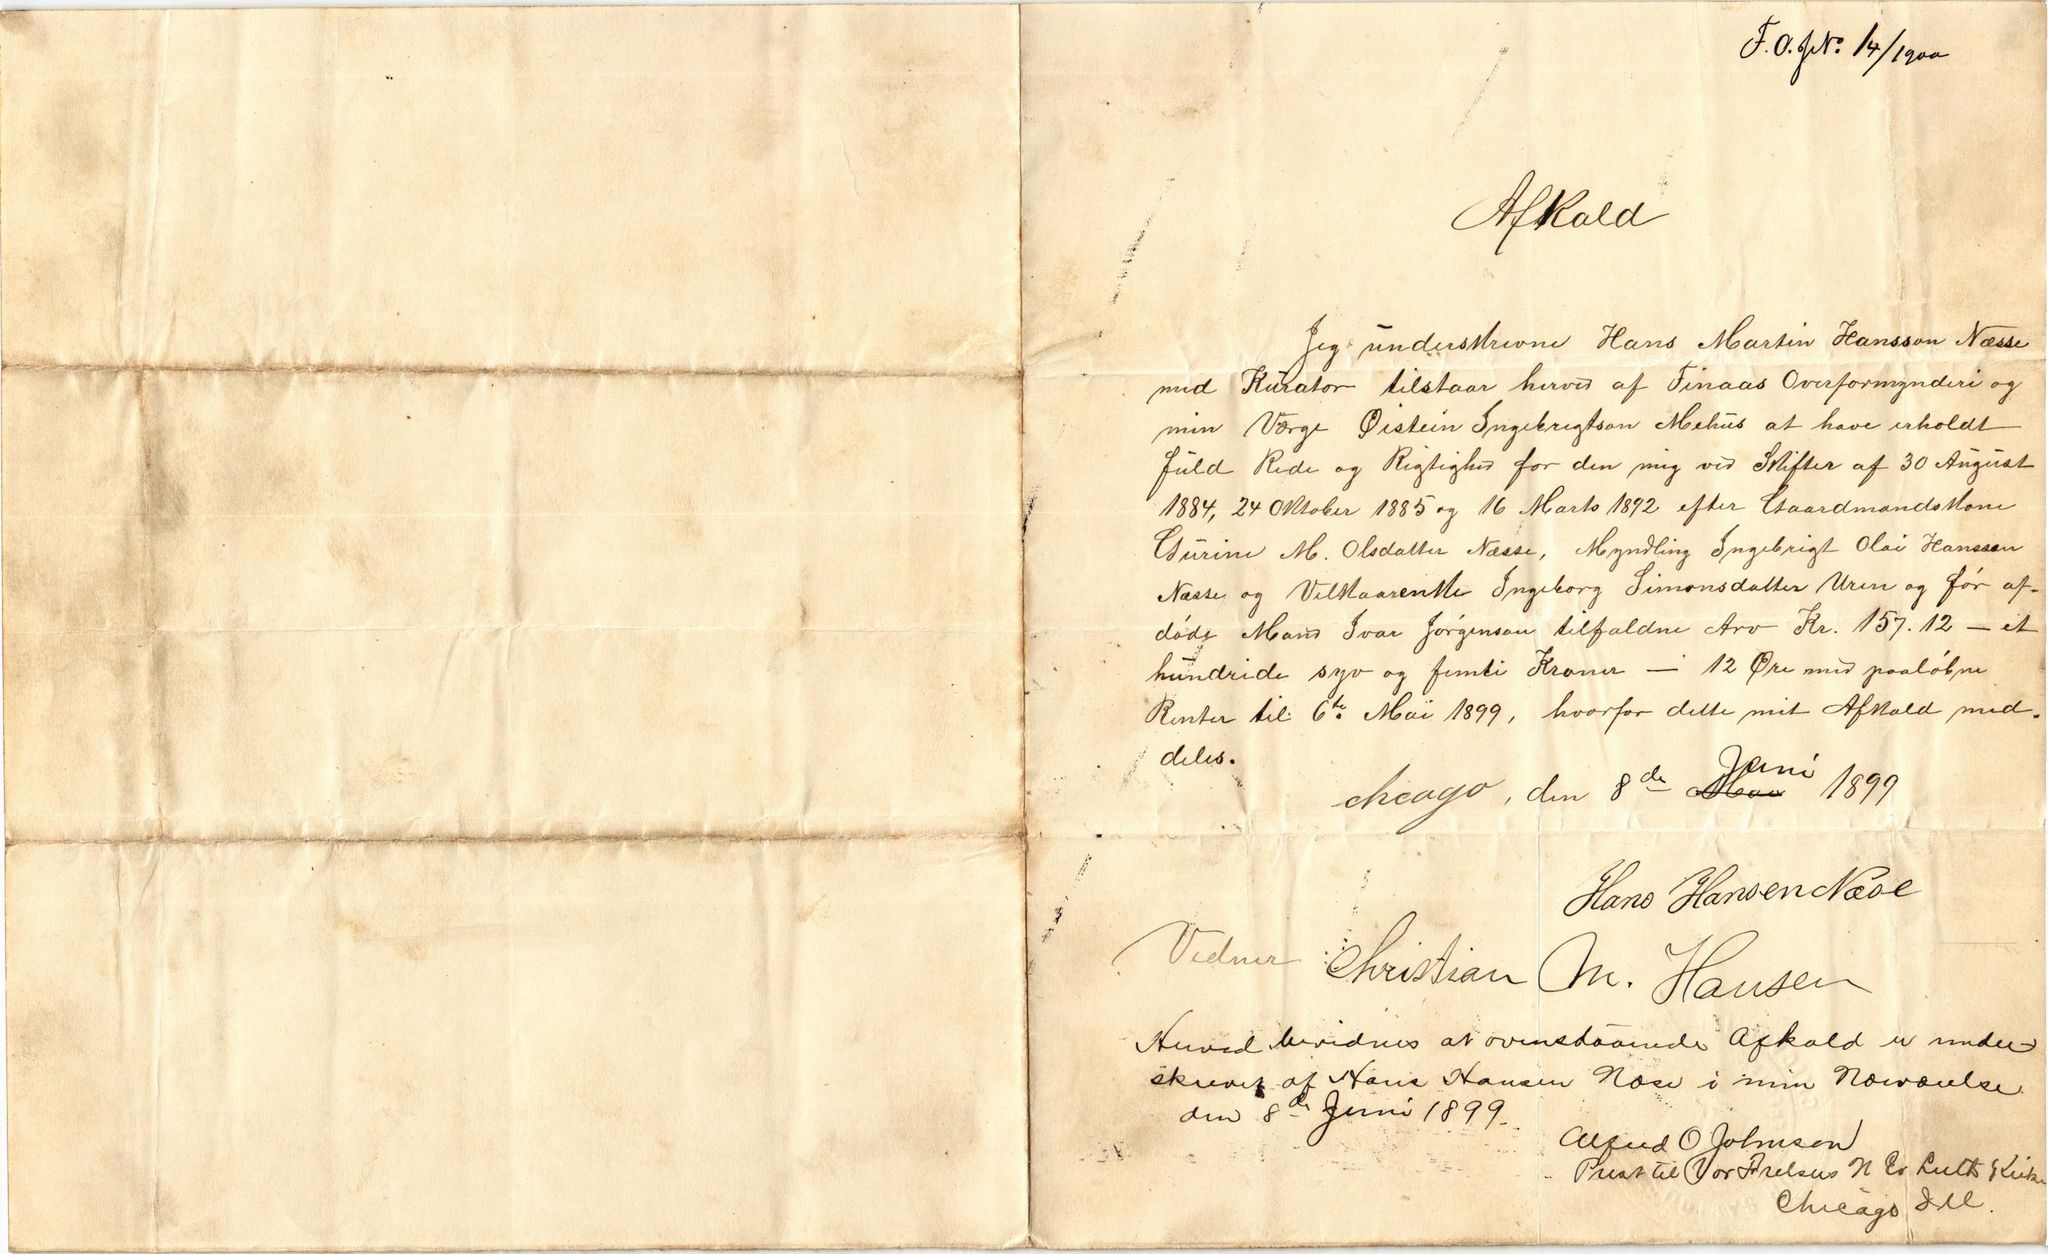 F.O.J.No. 14/1900
Afkald
Jeg underskrevne Hans Martin Hansson Næsse
med Kurator tilstaar herved af Finaas Overformynderi og
min Værge Øistein Ingebrigtson Mehus at have erholdt
fuld Rede og Rigtighed for den mig ved Skifter af 30 August
1884, 24 Oktober 1885 og 16 Marts 1892 efter Gaardmandskone
Gurine M. Olsdatter Næsse, Myndling Ingebrigt Olai Hanssen
Næsse og Velkaarenke Ingeborg Simonsdatter Uren og før af-
døde Mand Ivar Jørgenson tilfaldne Arv Kr. 157.12 — et
hundrede syv og femti Kroner — 12 Øre med paaløbne
Renter til 6te Mai 1899, hvorfor dette mit Afkald med-
deles.
Chicago, den 8de Juni 1899
Hans Hansen Næse
Vidner Christian M. Hansen
Herved bevidnes at ovenstaaende Afkald er under-
skrevet af Hans Hansen Næse i min Nærværelse
den 8de Juni 1899.
Alfred O Johnson
Prest til Vor Frelsers N Ev Luth Kirke
Chicago Ill.